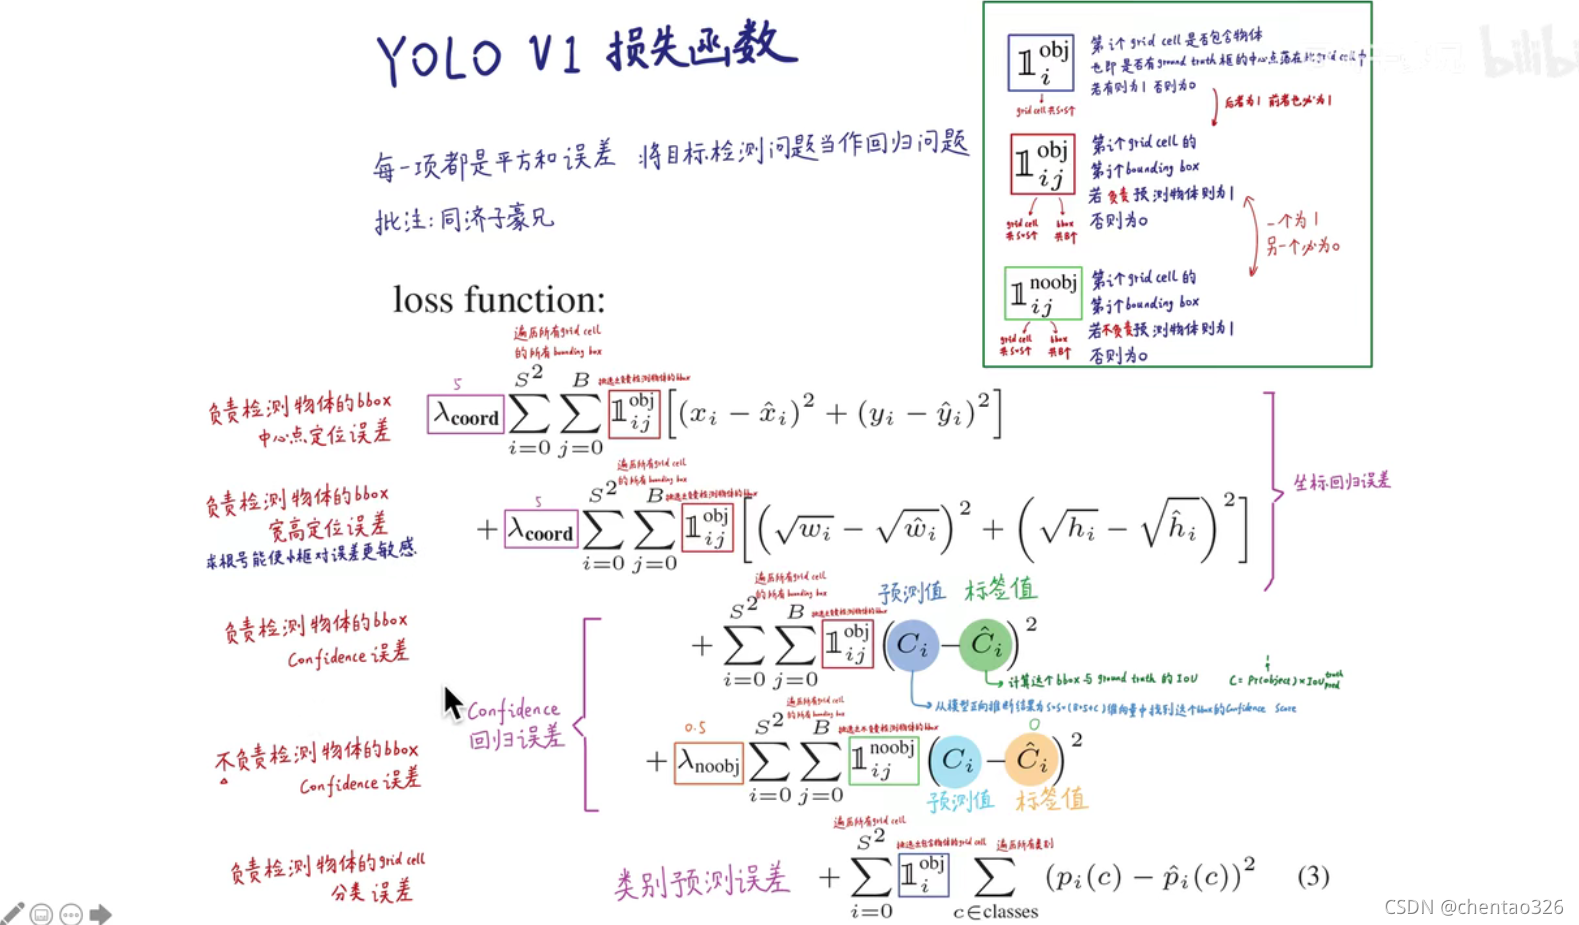 YOLO V1 损失函数
每一项都是平方和误差 将目标检测问题当作回归问题
批注:同济子豪兄
bilibi
𝟙_i^obj
grid cell 共S×S个
第i个grid cell是否包含物体
也即是否有ground truth框的中心点落在此grid cell中
若有则为1 否则为0
后者为1 前者也必为1
𝟙_ij^obj
grid cell
共S×S个
bbox
共B个
第i个grid cell的
第j个bounding box
若负责预测物体则为1
否则为0
一个为1
另一个必为0
𝟙_ij^noobj
grid cell
共S×S个
bbox
共B个
第i个grid cell的
第j个bounding box
若不负责预测物体则为1
否则为0
loss function:
遍历所有grid cell
的所有bounding box
负责检测物体的bbox
中心点定位误差
5
挑选出负责检测物体的bbox
λ_coord ∑_{i=0}^{S^2} ∑_{j=0}^{B} 𝟙_ij^obj [(x_i − x̂_i)^2 + (y_i − ŷ_i)^2]
坐标回归误差
遍历所有grid cell
的所有bounding box
负责检测物体的bbox
宽高定位误差
求根号能使小框对误差更敏感
5
挑选出负责检测物体的bbox
+ λ_coord ∑_{i=0}^{S^2} ∑_{j=0}^{B} 𝟙_ij^obj [(√w_i − √ŵ_i)^2 + (√h_i − √ĥ_i)^2]
遍历所有grid cell
的所有bounding box
预测值 标签值
负责检测物体的bbox
Confidence 误差
挑选出负责检测物体的bbox
+ ∑_{i=0}^{S^2} ∑_{j=0}^{B} 𝟙_ij^obj (C_i − Ĉ_i)^2
计算这个bbox与ground truth的IOU
1
C = Pr(object) × IOU_pred^truth
从模型正向推断结果为S×S×(B×5+C)维向量中找到这个bbox的Confidence Score
Confidence
回归误差
遍历所有grid cell
的所有bounding box
不负责检测物体的bbox
Confidence 误差
0.5
挑选出不负责检测物体的bbox
0
+ λ_noobj ∑_{i=0}^{S^2} ∑_{j=0}^{B} 𝟙_ij^noobj (C_i − Ĉ_i)^2
预测值 标签值
遍历所有grid cell
挑选出包含物体的grid cell 遍历所有类别
负责检测物体的grid cell
分类误差
类别预测误差
+ ∑_{i=0}^{S^2} 𝟙_i^obj ∑_{c∈classes} (p_i(c) − p̂_i(c))^2 (3)
CSDN @chentao326